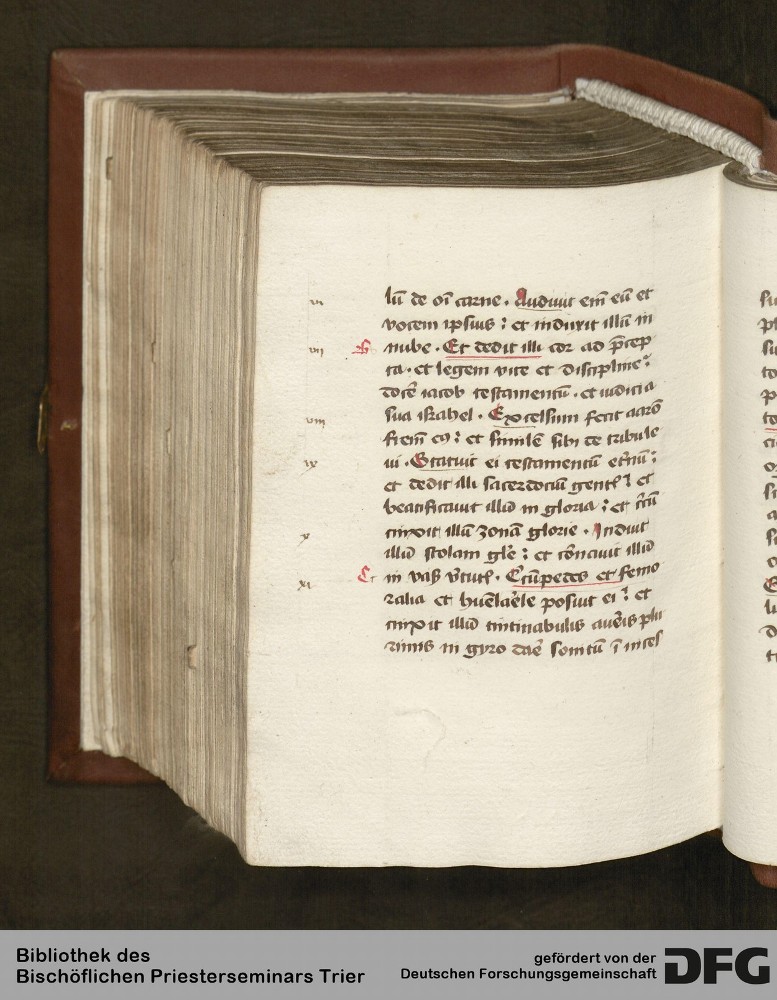 vi lū de oī carne . Audiuit em̄ eū et
vocem ipsius : et induxit illū in
vii B nube . Et dedit illi cor ad p̄cep
ta . et legem vite et discipline :
docē iacob testamentū . et iudicia
viii sua israhel . Excelsum fecit aarō
frēm eꝰ : et similē sibi de tribu le
ix ui . Statuit ei testamentū et̄nū :
et dedit illi sacerdociū gentꝭ : et
beatificauit illū in gloria : et c̄cū
x cinxit illū zonā glorie . Induit
illū stolam gl̄e : et corōnauit illū
xi C in vasꝭ v̄tutꝭ . Circūpedes et femo
ralia et hūerale posuit ei : et
cinxit illū tintinabulis aureis plu
rimis in gyro dāe sonitū ī inces
Bibliothek des
Bischöflichen Priesterseminars Trier
gefördert von der
Deutschen Forschungsgemeinschaft
DFG